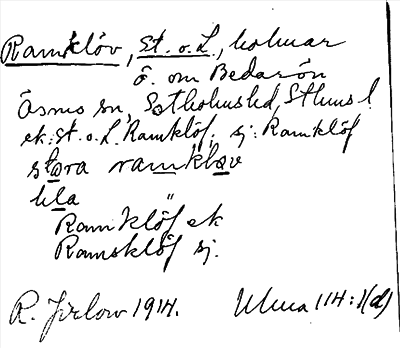 Ramklöv, St. o. L., holmar
ö. om Bedarön
Ösmo sn, Sotholms hd, Sthms l.
ek: St. o. L. Ramklöf. sj: Ramklöf
stora ramkløv
lilla "
Ramklöf ek
Ramsklöf sj.
R. Jirlow 1914. Ulma 114:1(d)